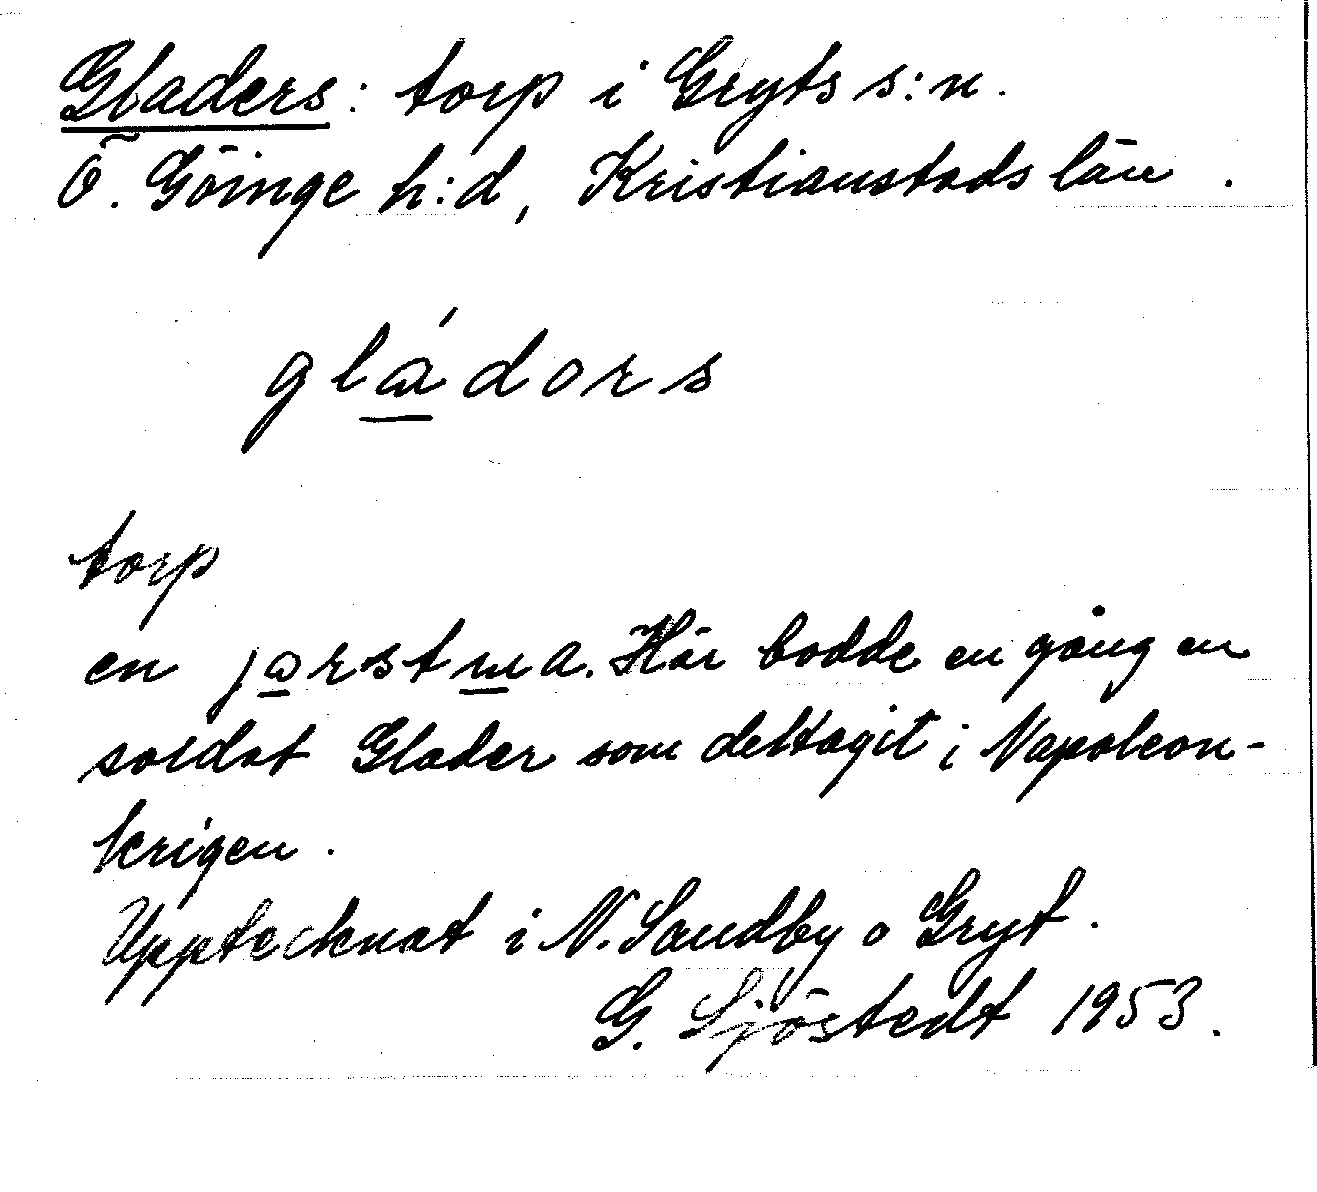 Gladers: torp i Gryts s:n.
Ö. Göinge h:d, Kristianstads län.
gládors
torp
en jorstma. Här bodde en gång en
soldat Glader som deltagit i Napoleon-
krigen.
Upptecknat i N. Sandby o Gryt.
G. Sjöstedt 1953.